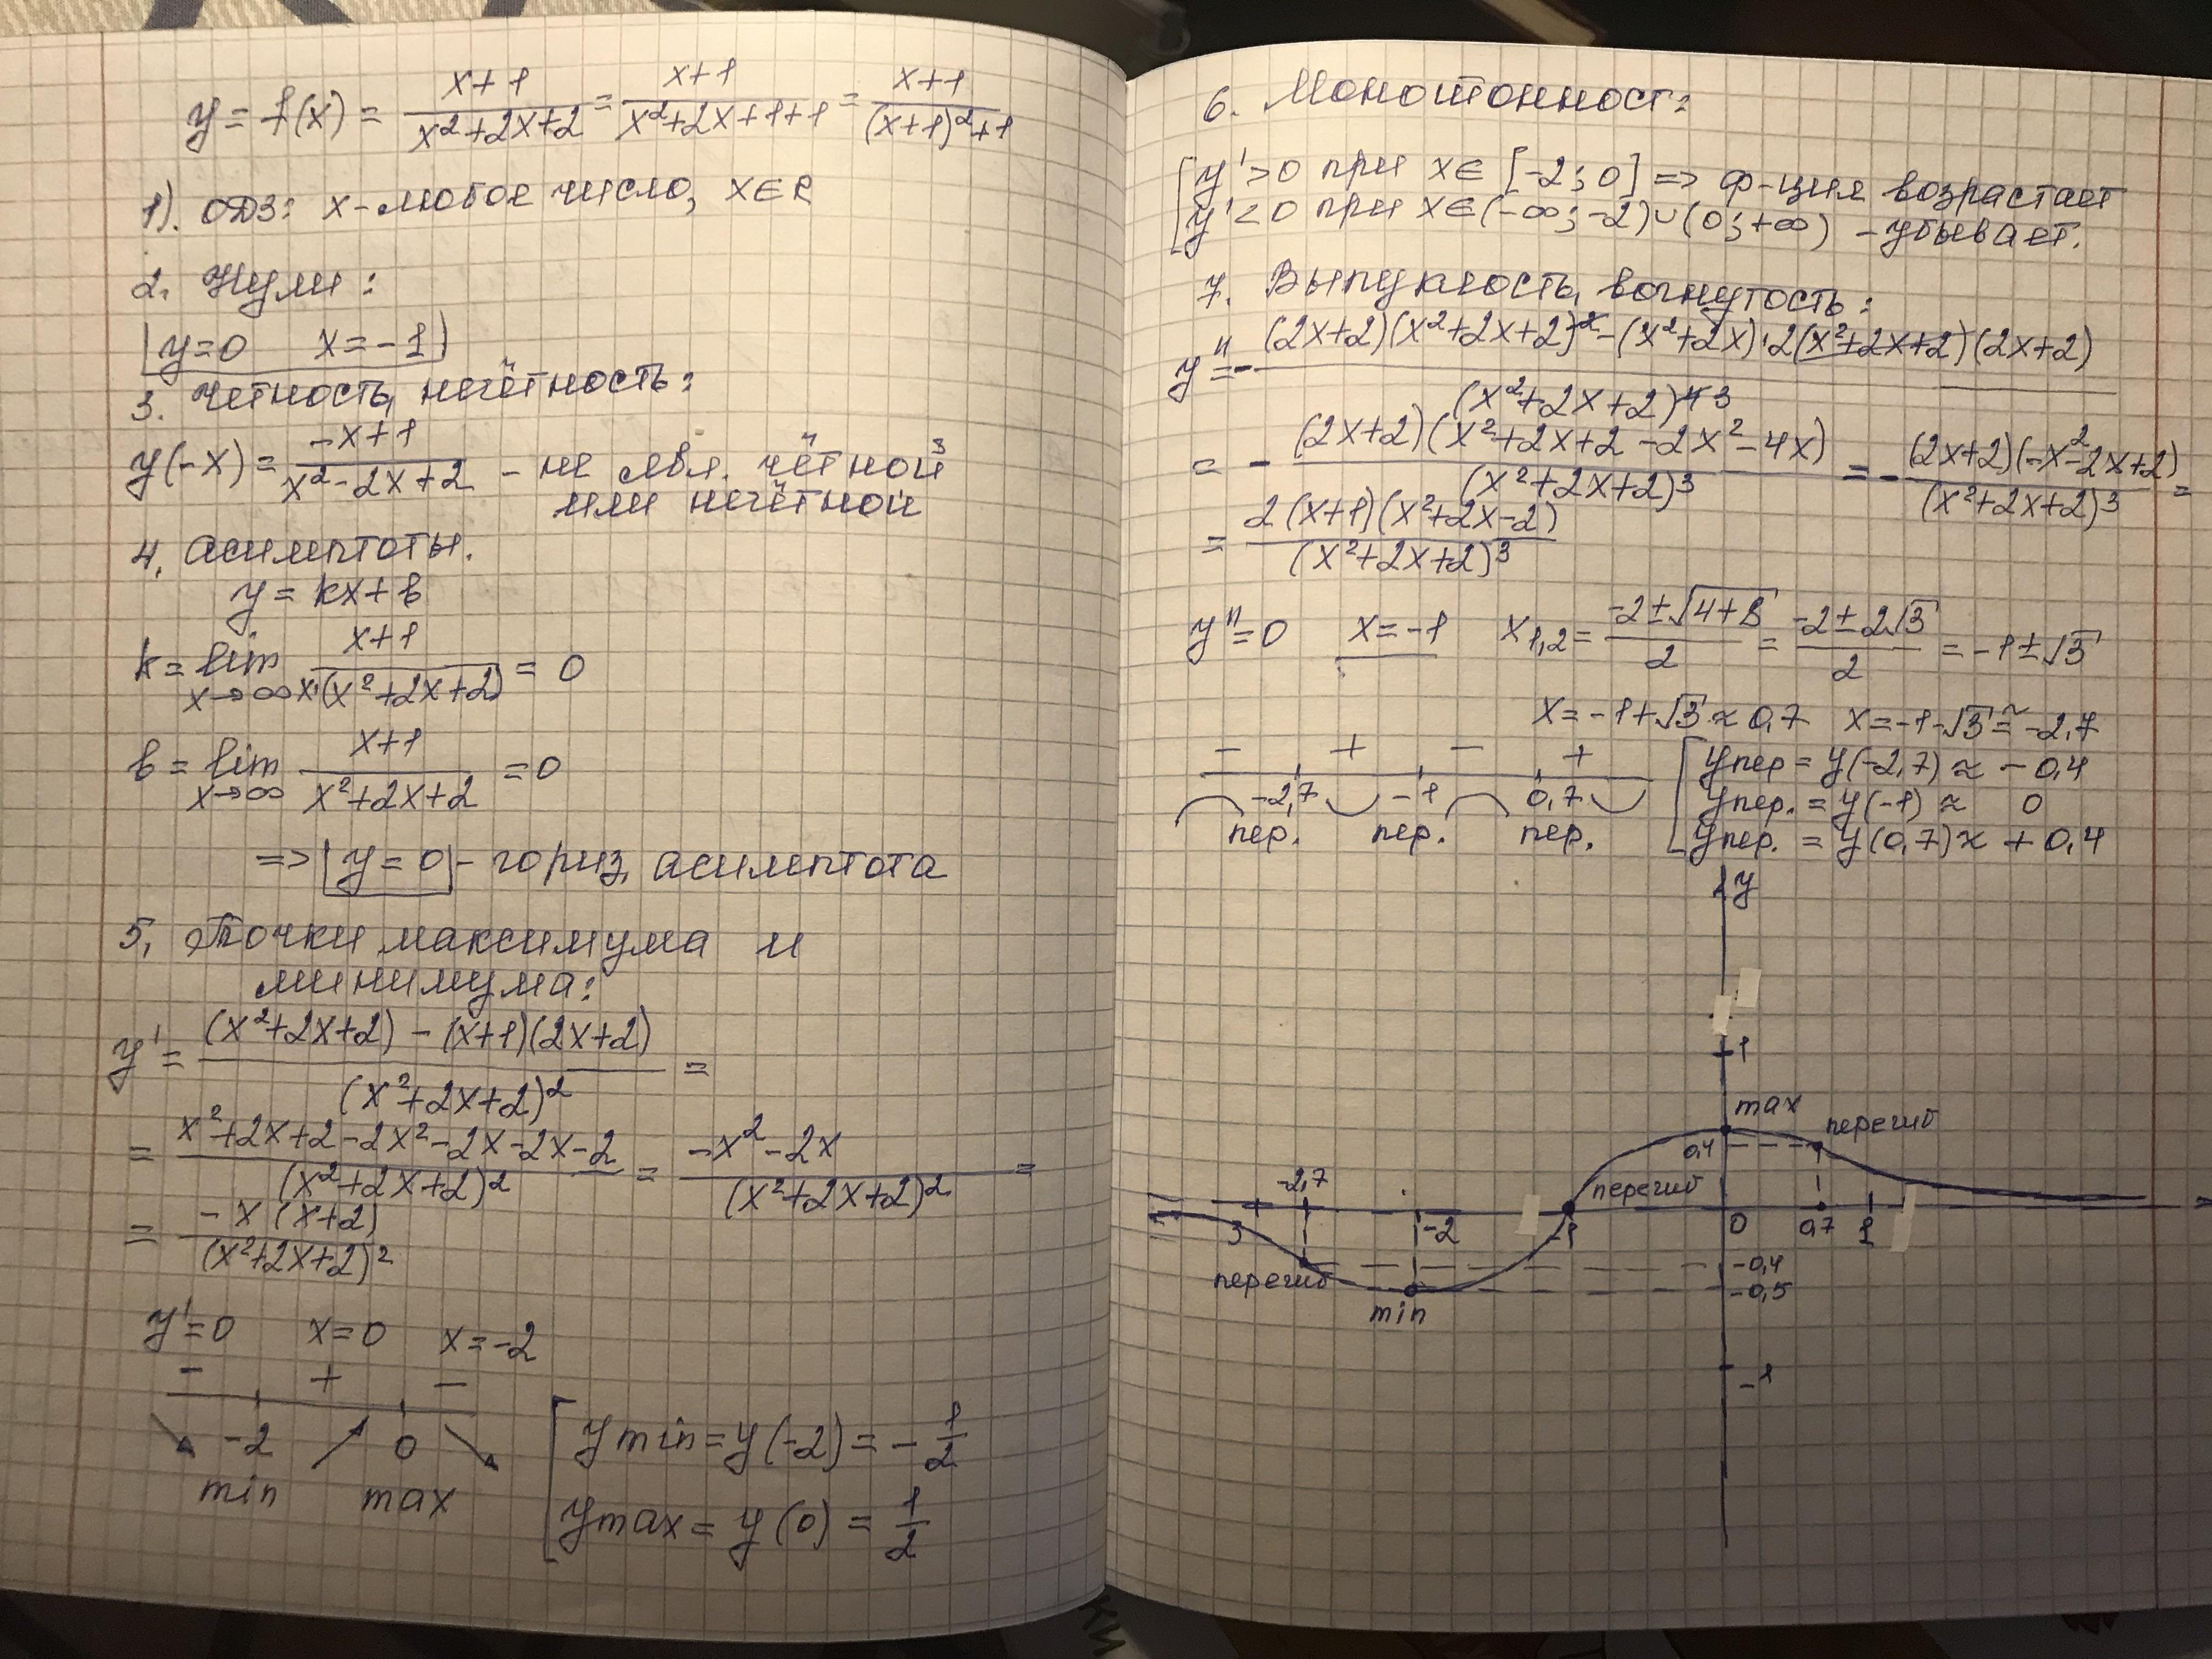 y = f(x) = (x+1)/(x²+2x+2) = (x+1)/(x²+2x+1+1) = (x+1)/((x+1)²+1)
1). ОДЗ: x - любое число, x∈R
2. Нули:
y=0 x=-1
3. Чётность, нечётность:
y(-x) = (-x+1)/(x²-2x+2) - не явл. чётной
или нечётной
4. Асимптоты.
y = kx+b
k = lim x→∞ (x+1)/(x·(x²+2x+2)) = 0
b = lim x→∞ (x+1)/(x²+2x+2) = 0
=> y=0 - гориз. асимптота
5. Точки максимума и
минимума:
y' = ((x²+2x+2) - (x+1)(2x+2))/(x²+2x+2)² =
= (x²+2x+2-2x²-2x-2x-2)/(x²+2x+2)² = (-x²-2x)/(x²+2x+2)² =
= (-x(x+2))/(x²+2x+2)²
y'=0 x=0 x=-2
- + -
-2 0
min max
y min = y(-2) = -1/2
y max = y(0) = 1/2
6. Монотонност:
y'>0 при x∈[-2;0] => ф-ция возрастает
y'<0 при x∈(-∞;-2)∪(0;+∞) - убывает.
7. Выпуклость, вогнутость:
y'' = - ((2x+2)(x²+2x+2)² - (x²+2x)·2(x²+2x+2)(2x+2))/(x²+2x+2)⁴ 3
= - ((2x+2)(x²+2x+2-2x²-4x))/(x²+2x+2)³ = - ((2x+2)(-x²-2x+2))/(x²+2x+2)³ =
= (2(x+1)(x²+2x-2))/(x²+2x+2)³
y''=0 x=-1 x1,2 = (-2±√(4+8))/2 = (-2±2√3)/2 = -1±√3
x=-1+√3≈0,7 x=-1-√3≈-2,7
- + - +
-2,7 -1 0,7
пер. пер. пер.
yпер = y(-2,7) ≈ -0,4
yпер. = y(-1) ≈ 0
yпер. = y(0,7) ≈ +0,4
y
1
max
перегиб
0,4
-2,7
перегиб
3 -2 -1 0 0,7 1
-0,4
перегиб
-0,5
min
-1